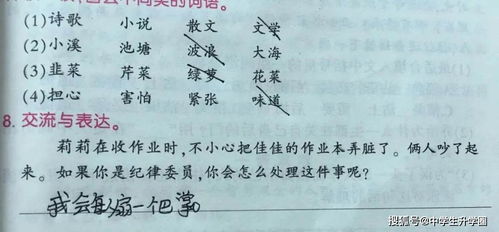 画去不同类的词语。
(1)诗歌 小说 散文 文学
(2)小溪 池塘 波浪 大海
(3)韭菜 芹菜 绿萝 花菜
(4)担心 害怕 紧张 味道
8. 交流与表达。
莉莉在收作业时,不小心把佳佳的作业本弄脏了。俩人吵了起
来。如果你是纪律委员,你会怎么处理这件事呢?
我会每人扇一个巴掌
搜狐号@中学生升学圈